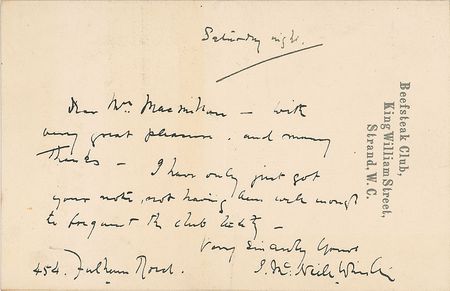 Saturday night.
Beefsteak Club,
King William Street,
Strand, W.C.
Dear Mrs Macmillan — with
very great pleasure. and many
thanks — I have only just got
your note, not having been well enough
to frequent the club lately —
Very Sincerely Yours
454. Fulham Road. J. Mc. Neill Whistler